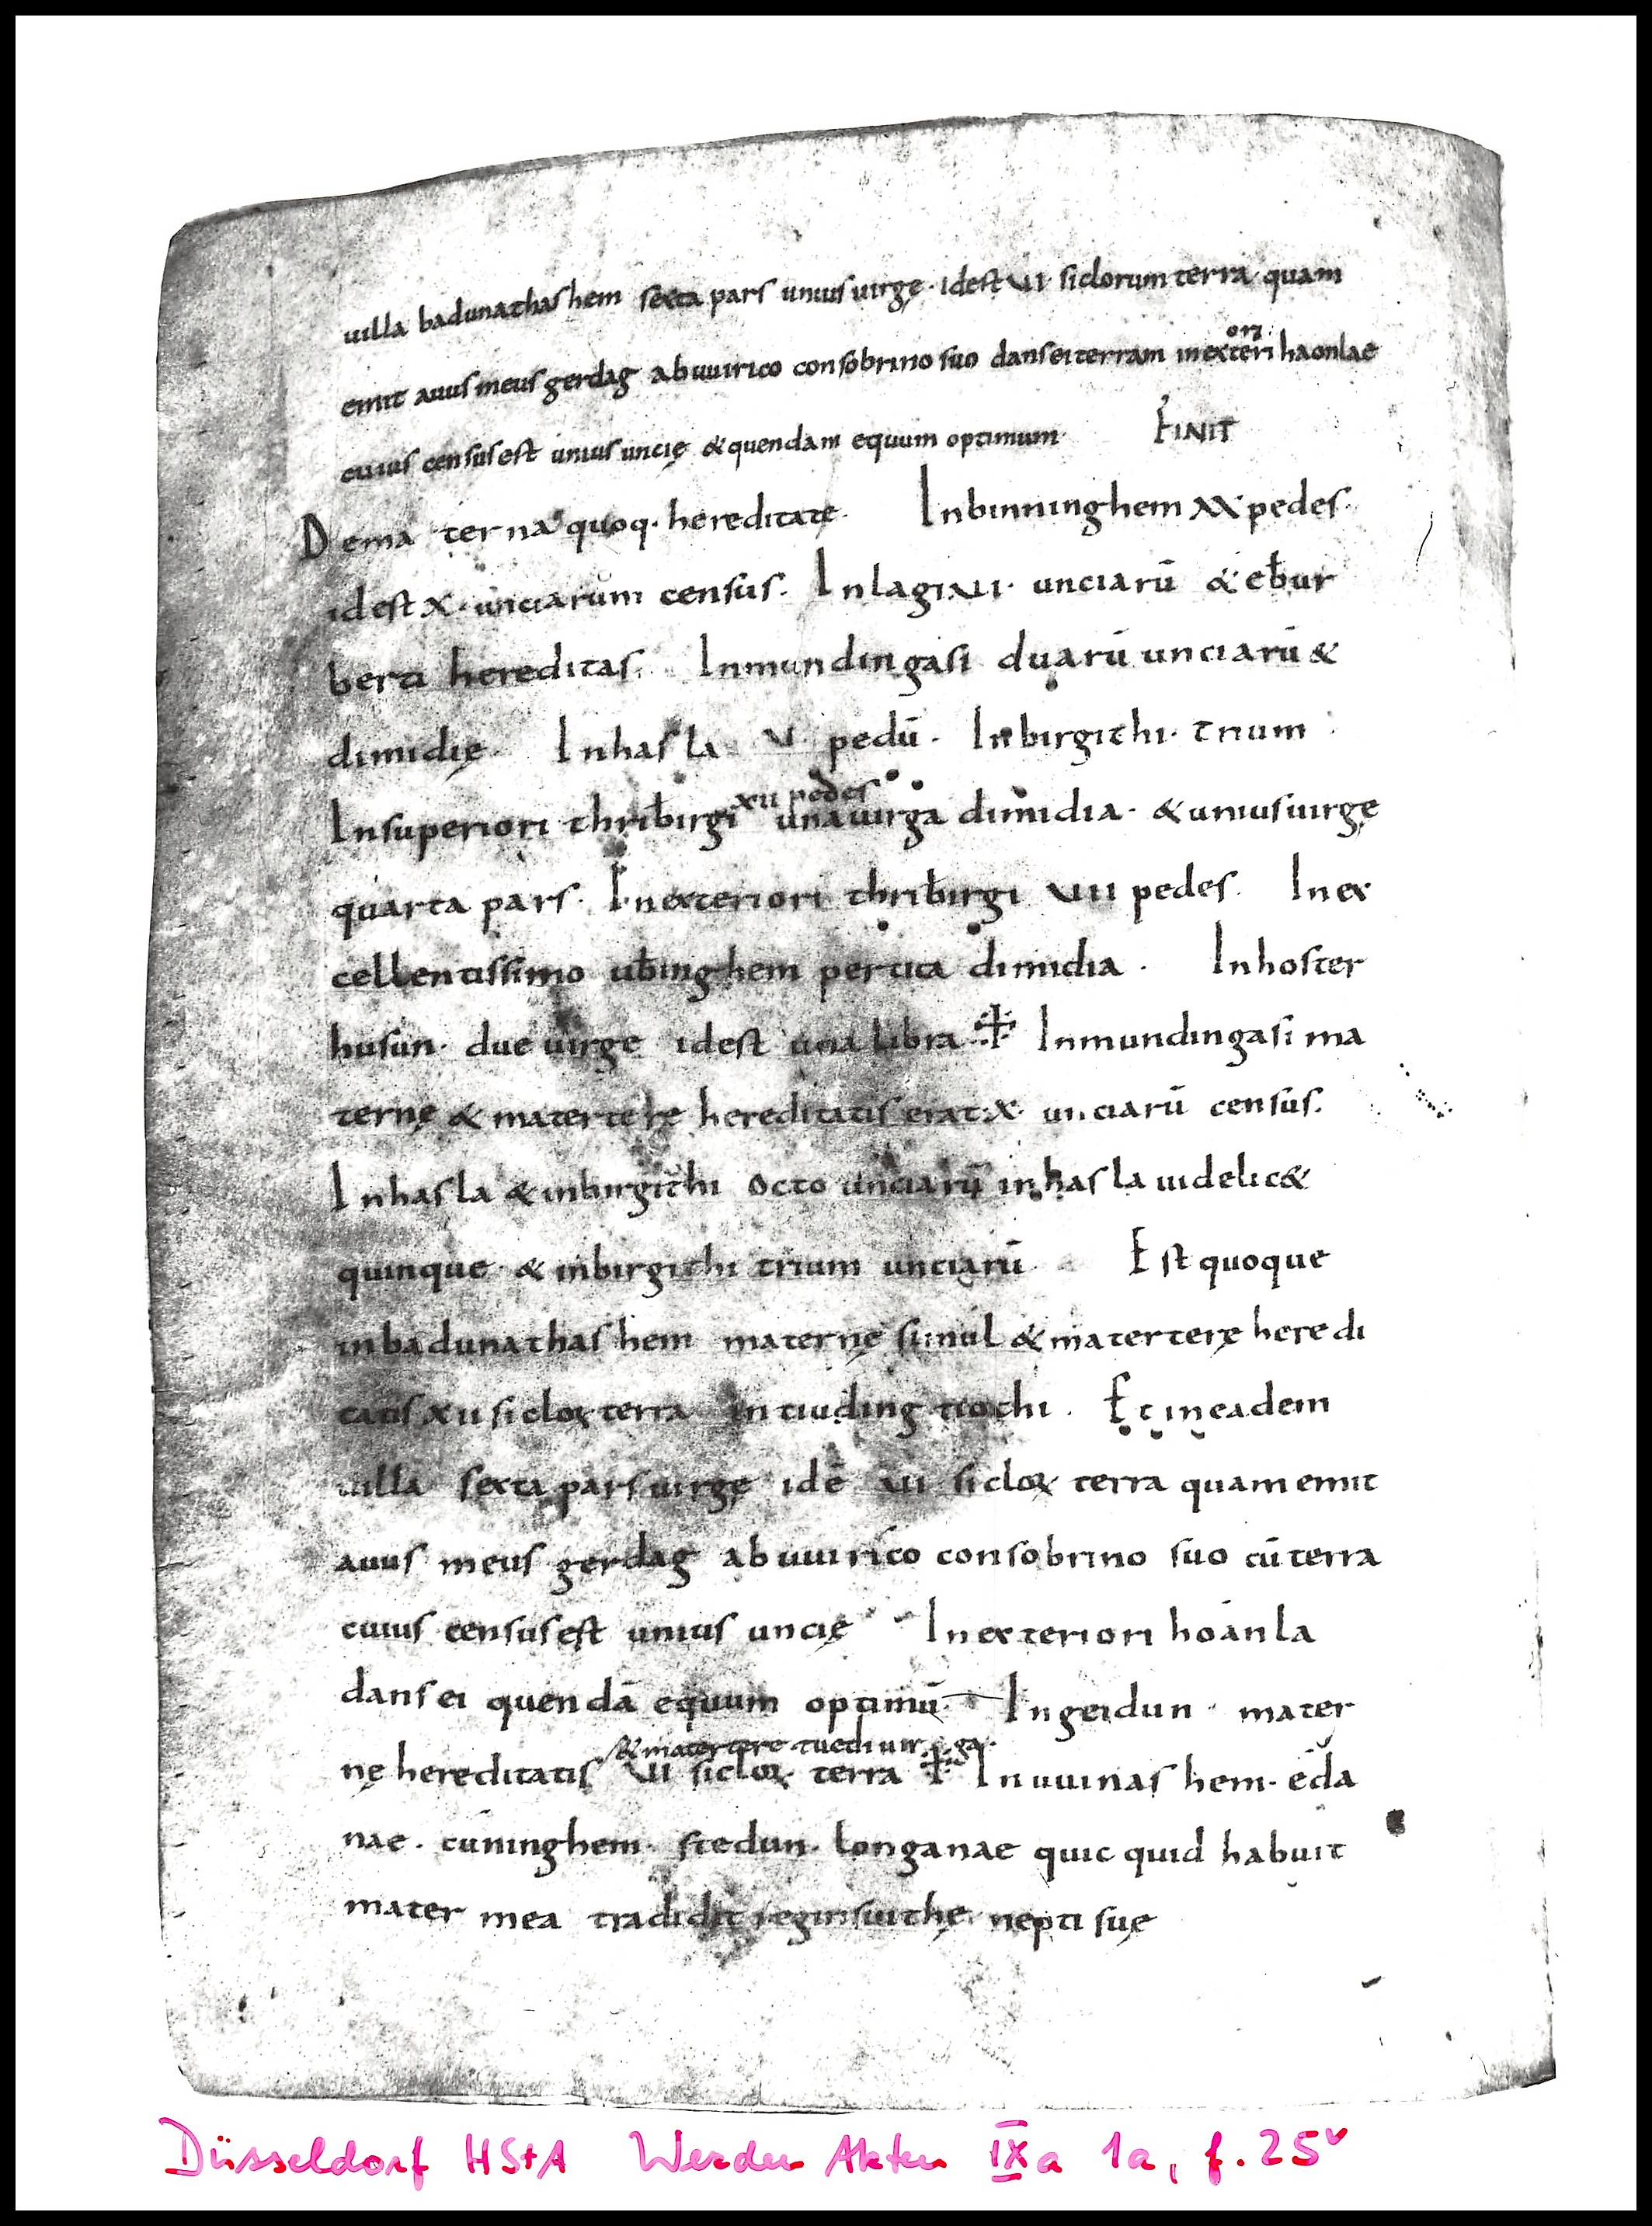 uilla badunathashem sexta pars unius uirgę · idest VI · siclorum terra · quam
ori
emit auus meus gerdag ab uuirico consobrino suo dans ei terram in exteri haonlae
cuius census est unius uncię & quendam equum optimum · FINIT
De materna quoq· hereditatę · In binninghem XX pedes ·
idest X · unciarum census · In lagi VI · unciarū & eƀur
berti hereditas · In mundingasi duarū unciarū &
dimidię · In hasla V · pedū · In birgithi · trium ·
xii pedes
In superiori thriƀirgi una uirga dimidia · & unius uirgę
quarta pars · In exteriori thriƀirgi VII pedes · In ex
cellentissimo uƀinghem pertica dimidia · In hoster
husun · due uirge idest una libra · In mundingasi ma
ternę & materterę hereditatis erat · X · unciarū census ·
In hasla & in birgithi octo unciarū in hasla uidelic&
quinque & in birgithi trium unciarū Est quoque
in badunathashem maternę simul & materterę heredi
tatis XII sicloꝝ terra in tiuding tiochi · Et in eadem
uilla sexta pars uirgę idē VI sicloꝝ terra quam emit
auus meus gerdag ab uuirico consobrino suo cū terra
cuius census est unius uncię In exteriori hoanla
dans ei quendā equum optimū · In geidun · mater
& matertere tue di uir ga ·
nę hereditatis VII sicloꝝ terra In uuinashem · eđa
nae · cuninghem · stedun · longanae quic quid habuit
mater mea tradidit reginsuithę nepti suę
Düsseldorf HStA Werden Akten IXa 1a, f. 25v